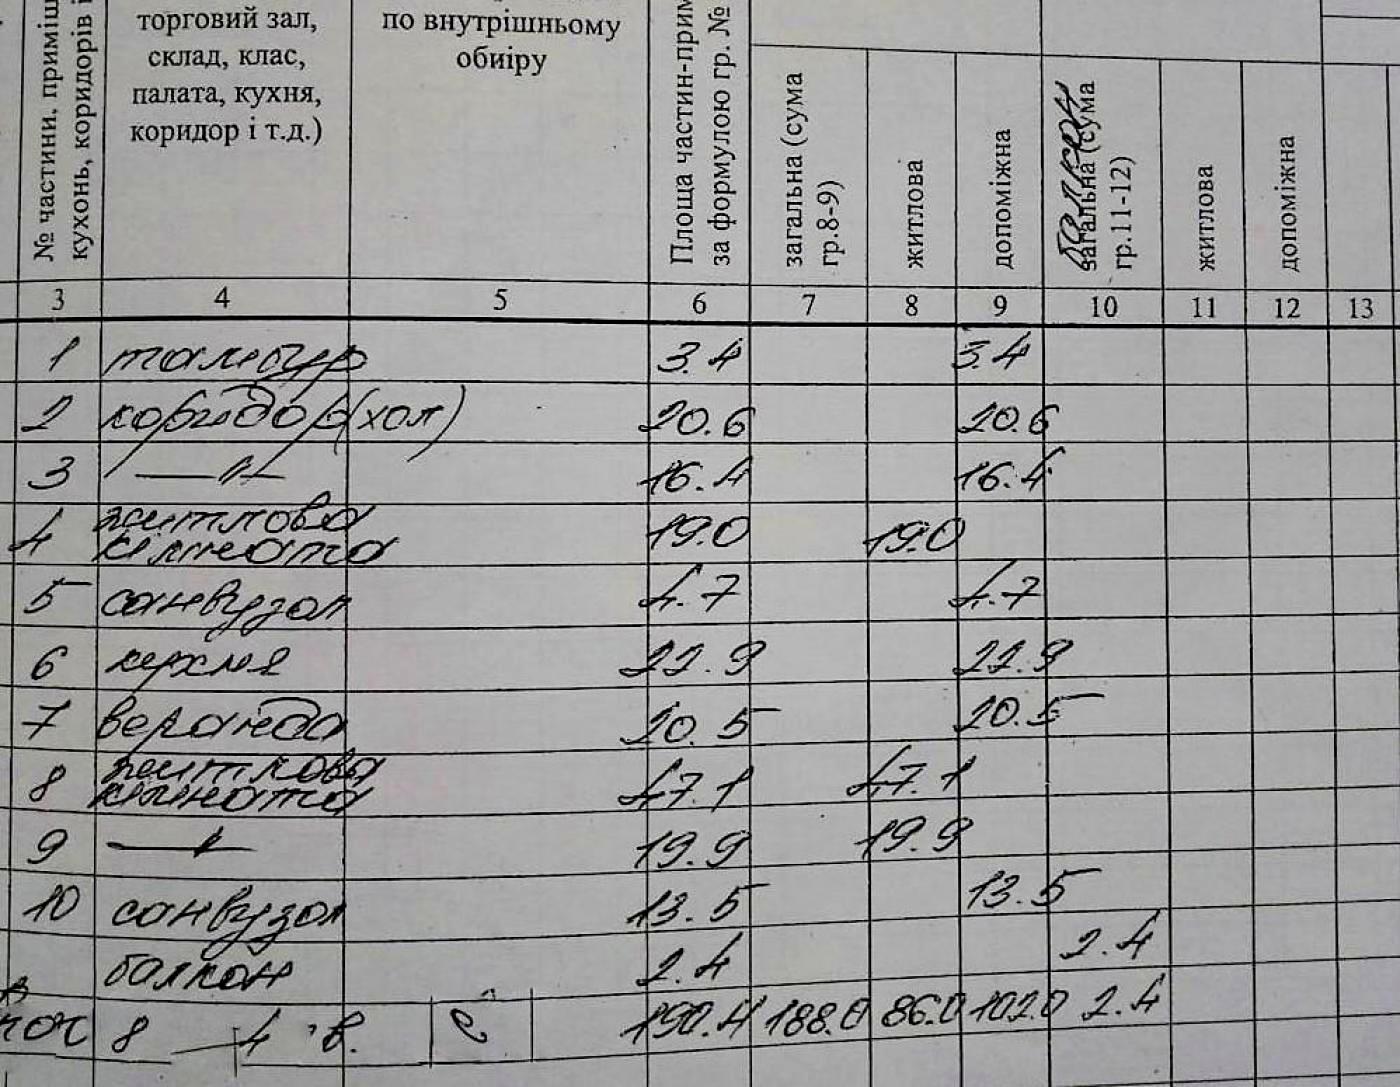 № частини, приміщ
кухонь, коридорів і
торговий зал,
склад, клас,
палата, кухня,
коридор і т.д.)
по внутрішньому
обміру
Площа частин-прим
за формулою гр. №
загальна (сума
гр.8-9)
житлова
допоміжна
балкон
загальна (сума
гр.11-12)
житлова
допоміжна
3 4 5 6 7 8 9 10 11 12 13
1 тамбур 3.4 3.4
2 коридор (хол) 20.6 20.6
3 —"— 16.4 16.4
4 житлова
кімната 19.0 19.0
5 санвузол 4.7 4.7
6 кухня 22.9 22.9
7 веранда 20.5 20.5
8 житлова
кімната 47.1 47.1
9 —"— 19.9 19.9
10 санвузол 13.5 13.5
балкон 2.4 2.4
190.4 188.0 86.0 102.0 2.4